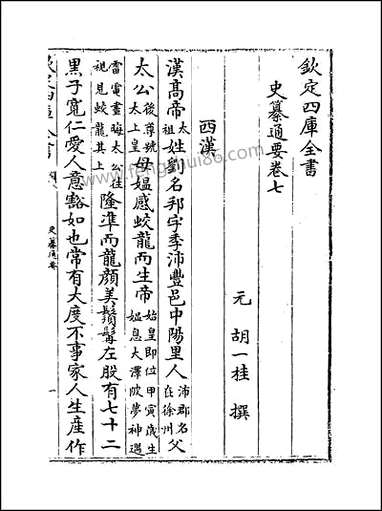 欽定四庫全書
史纂通要卷七
元 胡一桂 撰
西漢
漢髙帝太祖姓劉名邦字季沛豐邑中陽里人沛郡名在徐州父
太公後尊號太上皇母媪感蛟龍而生帝始皇即位甲寅歳生媪息大澤陂夢神遇
雷電晝晦太公往視見蛟龍其上隆準而龍顔美鬚髯左股有七十二
黒子寛仁愛人意豁如也常有大度不事家人生産作
史纂通要
一
www.fengshui86.com